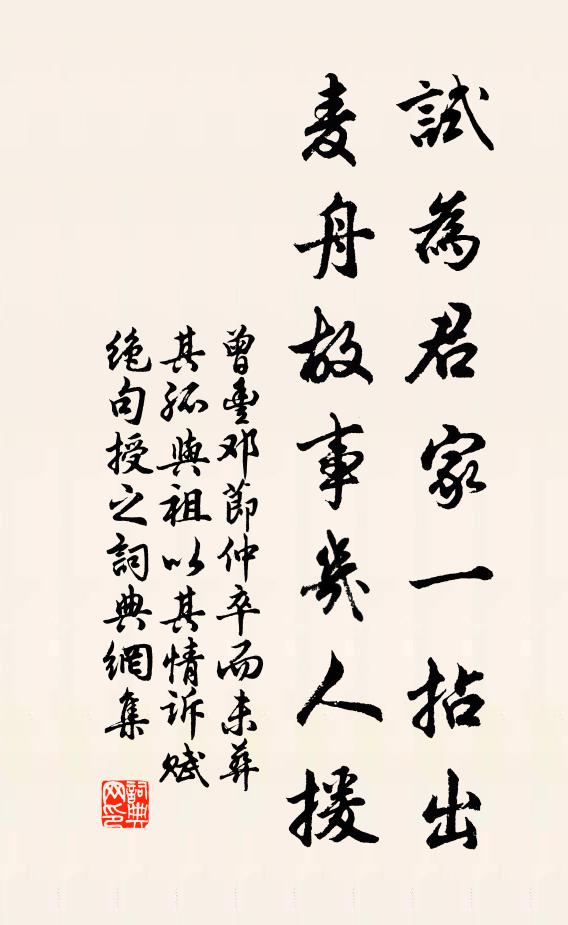 試為君家一拈出
麦舟故事幾人援
曾豐邓節仲卒而未葬
其孤與祖以其情诉赋
絶句授之詞典網集
詞典
网印